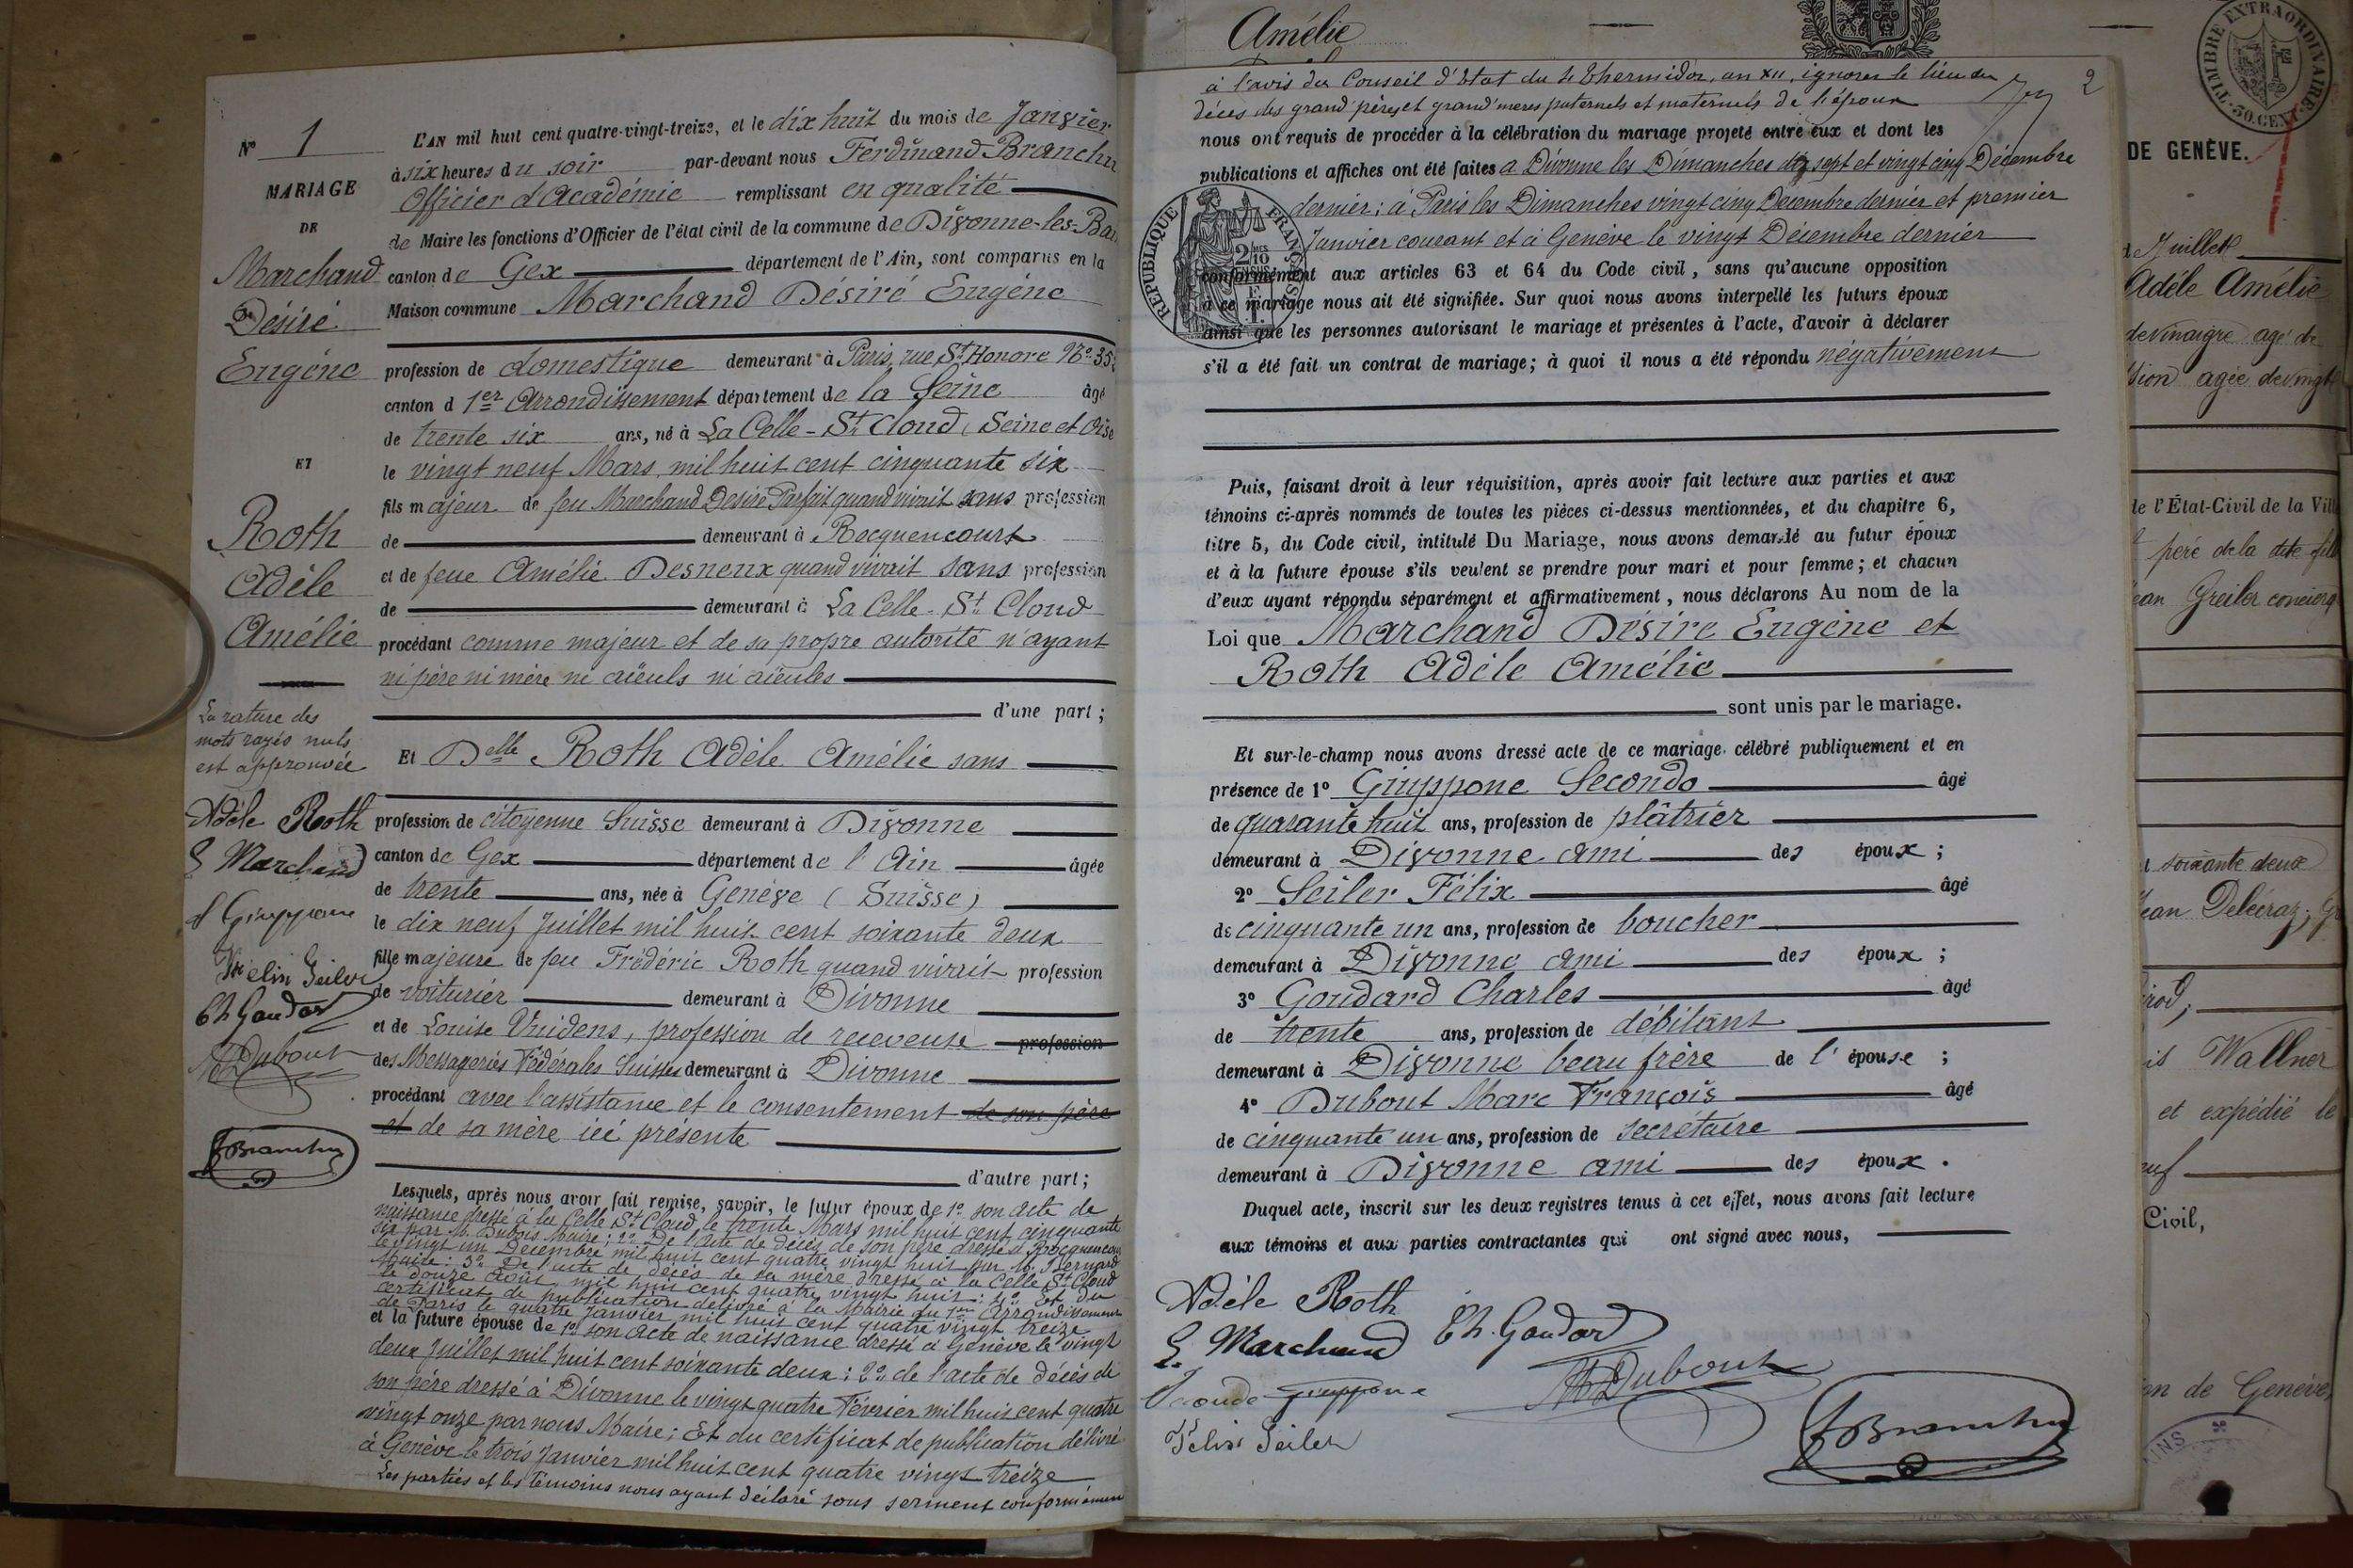 Nº 1
MARIAGE
DE
Marchand
Désiré
Eugène
ET
Roth
Adèle
Amélie
La rature des
mots rayés nuls
est approuvée
Adèle Roth
E Marchand
Giuppone
Félix Seiler
Ch Goudard
Dubout
FBranchu
L'AN mil huit cent quatre-vingt-treize, et le dix huit du mois de Janvier
à six heures du soir par-devant nous Ferdinand Branchu
Officier d'Académie remplissant en qualité
de Maire les fonctions d'Officier de l'état civil de la commune de Divonne-les-Bains
canton de Gex département de l'Ain, sont comparus en la
Maison commune Marchand Désiré Eugène
profession de domestique demeurant à Paris, rue St Honoré Nº 35
canton d 1er Arrondissement département de la Seine âgé
de trente six ans, né à La Celle-St Cloud (Seine et Oise
le vingt neuf Mars mil huit cent cinquante six
fils majeur de feu Marchand Désiré Parfait quand vivait sans profession
de demeurant à Rocquencourt
et de feue Amélie Desneux quand vivait sans profession
de demeurant à La Celle-St Cloud
procédant comme majeur et de sa propre autorité n'ayant
ni père ni mère ni aïeuls ni aïeules
d'une part ;
Et Delle Roth Adèle Amélie sans
profession de citoyenne Suisse demeurant à Divonne
canton de Gex département de l'Ain âgée
de trente ans, née à Genève (Suisse)
le dix neuf Juillet mil huit cent soixante deux
fille majeure de feu Frédéric Roth quand vivait profession
de voiturier demeurant à Divonne
et de Louise Vuidens, profession de receveuse profession
des Messageries Fédérales Suisses demeurant à Divonne
procédant avec l'assistance et le consentement de son père
et de sa mère ici présente
d'autre part ;
Lesquels, après nous avoir fait remise, savoir, le futur époux, de 1º son acte de
naissance dressé à la Celle St Cloud, le trente Mars mil huit cent cinquante
six par M. Dubois Maire ; 2º De l'acte de décès de son père dressé à Rocquencourt
le vingt un Décembre mil huit cent quatre vingt huit par M. Bernard
Maire : 3º De l'acte de décès de sa mère dressé à la Celle St Cloud
le douze Août mil huit cent quatre vingt huit : 4º Et du
certificat de publication délivré à la Mairie du 1er Arrondissement
de Paris le quatre Janvier mil huit cent quatre vingt treize
et la future épouse de 1º son acte de naissance dressé à Genève le vingt
deux Juillet mil huit cent soixante deux : 2º de l'acte de décès de
son père dressé à Divonne le vingt quatre Février mil huit cent quatre
vingt onze par nous Maire ; Et du certificat de publication délivré
à Genève le trois Janvier mil huit cent quatre vingt treize
Les parties et les témoins nous ayant déclaré sous serment conformément
2
à l'avis du Conseil d'Etat du 4 Thermidor, an XII, ignorer le lieu du
décès des grand'pères et grand'mères paternels et maternels de l'époux
nous ont requis de procéder à la célébration du mariage projeté entre eux et dont les
publications et affiches ont été faites à Divonne les Dimanches dix sept et vingt cinq Décembre
dernier ; à Paris les Dimanches vingt cinq Décembre dernier et premier
Janvier courant et à Genève le vingt Décembre dernier
conformément aux articles 63 et 64 du Code civil, sans qu'aucune opposition
à ce mariage nous ait été signifiée. Sur quoi nous avons interpellé les futurs époux
ainsi que les personnes autorisant le mariage et présentes à l'acte, d'avoir à déclarer
s'il a été fait un contrat de mariage ; à quoi il nous a été répondu négativement
RÉPUBLIQUE FRANÇAISE
Puis, faisant droit à leur réquisition, après avoir fait lecture aux parties et aux
témoins ci-après nommés de toutes les pièces ci-dessus mentionnées, et du chapitre 6,
titre 5, du Code civil, intitulé Du Mariage, nous avons demandé au futur époux
et à la future épouse s'ils veulent se prendre pour mari et pour femme ; et chacun
d'eux ayant répondu séparément et affirmativement, nous déclarons Au nom de la
Loi que Marchand Désiré Eugène et
Roth Adèle Amélie
sont unis par le mariage.
Et sur-le-champ nous avons dressé acte de ce mariage célébré publiquement et en
présence de 1º Giuppone Secondo âgé
de quarante huit ans, profession de plâtrier
demeurant à Divonne ami des époux ;
2º Seiler Félix âgé
de cinquante un ans, profession de boucher
demeurant à Divonne ami des époux ;
3º Goudard Charles âgé
de trente ans, profession de débitant
demeurant à Divonne beau frère de l'épouse ;
4º Dubout Marc François âgé
de cinquante un ans, profession de secrétaire
demeurant à Divonne ami des époux.
Duquel acte, inscrit sur les deux registres tenus à cet effet, nous avons fait lecture
aux témoins et aux parties contractantes qui ont signé avec nous,
Adèle Roth
E. Marchand Ch. Goudard
Secondo Giuppone Dubout
Félix Seiler FBranchu
Amélie
TIMBRE EXTRAORDINAIRE
50.CENT.
DE GENÈVE.
de Juillet
Adèle Amélie
de vinaigre agé de
agée de vingt
de l'État-Civil de la Ville
père de la dite fille
Jean Greiler concierge
soixante deux
Jean Delécraz,
Wallner
et expédié le
Civil,
de Genève